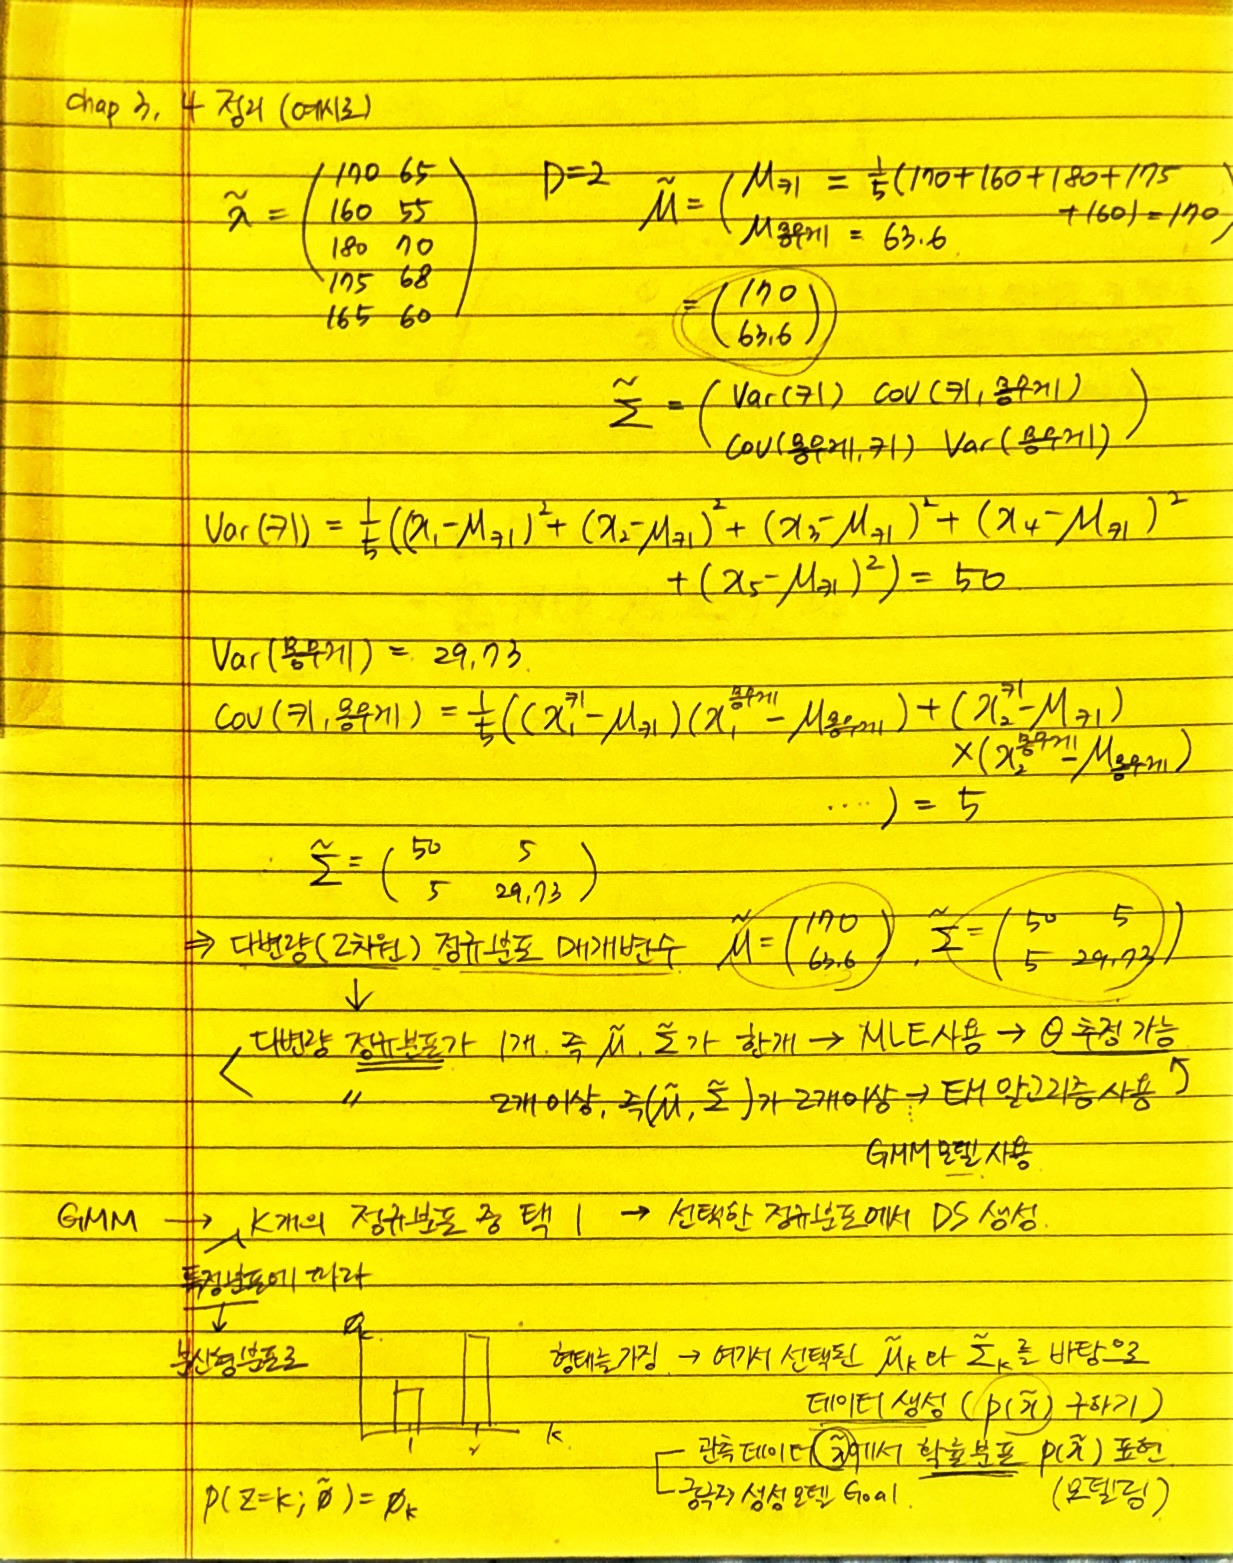 Chap 3, 4 정리 (예시로)
x̃ = ( 170 65
160 55
180 70
175 68
165 60 )
D=2
μ̃ = ( μ키 = 1/5 (170+160+180+175
+160) = 170
μ몸무게 = 63.6 )
= ( 170
63.6 )
Σ̃ = ( Var(키) Cov(키, 몸무게)
Cov(몸무게, 키) Var(몸무게) )
Var(키) = 1/5 ((x₁-μ키)² + (x₂-μ키)² + (x₃-μ키)² + (x₄-μ키)²
+ (x₅-μ키)²) = 50
Var(몸무게) = 29.73
Cov(키, 몸무게) = 1/5 ((x₁키 - μ키)(x₁몸무게 - μ몸무게) + (x₂키 - μ키)
×(x₂몸무게 - μ몸무게)
....) = 5
Σ̃ = ( 50 5
5 29.73 )
⇒ 다변량(2차원) 정규분포 매개변수 μ̃ = ( 170
63.6 ), Σ̃ = ( 50 5
5 29.73 )
↓
다변량 정규분포가 1개. 즉 μ̃, Σ̃가 한개 → MLE사용 → θ 추정 가능
〃 2개 이상, 즉(μ̃, Σ̃)가 2개이상 → EM 알고리즘 사용
GMM 모델 사용
GMM → K개의 정규분포 중 택 1 → 선택한 정규분포에서 DS 생성.
특정분포에 따라
↓
분포로
Øk
1 2 k
형태를 가짐 → 여기서 선택된 μ̃k와 Σ̃k를 바탕으로
데이터 생성 (p(x̃) 구하기)
관측 데이터 x̃에서 확률분포 p(x̃) 표현
(모델링)
궁극적 생성모델 Goal.
p(z=k; Ø̃) = Øk